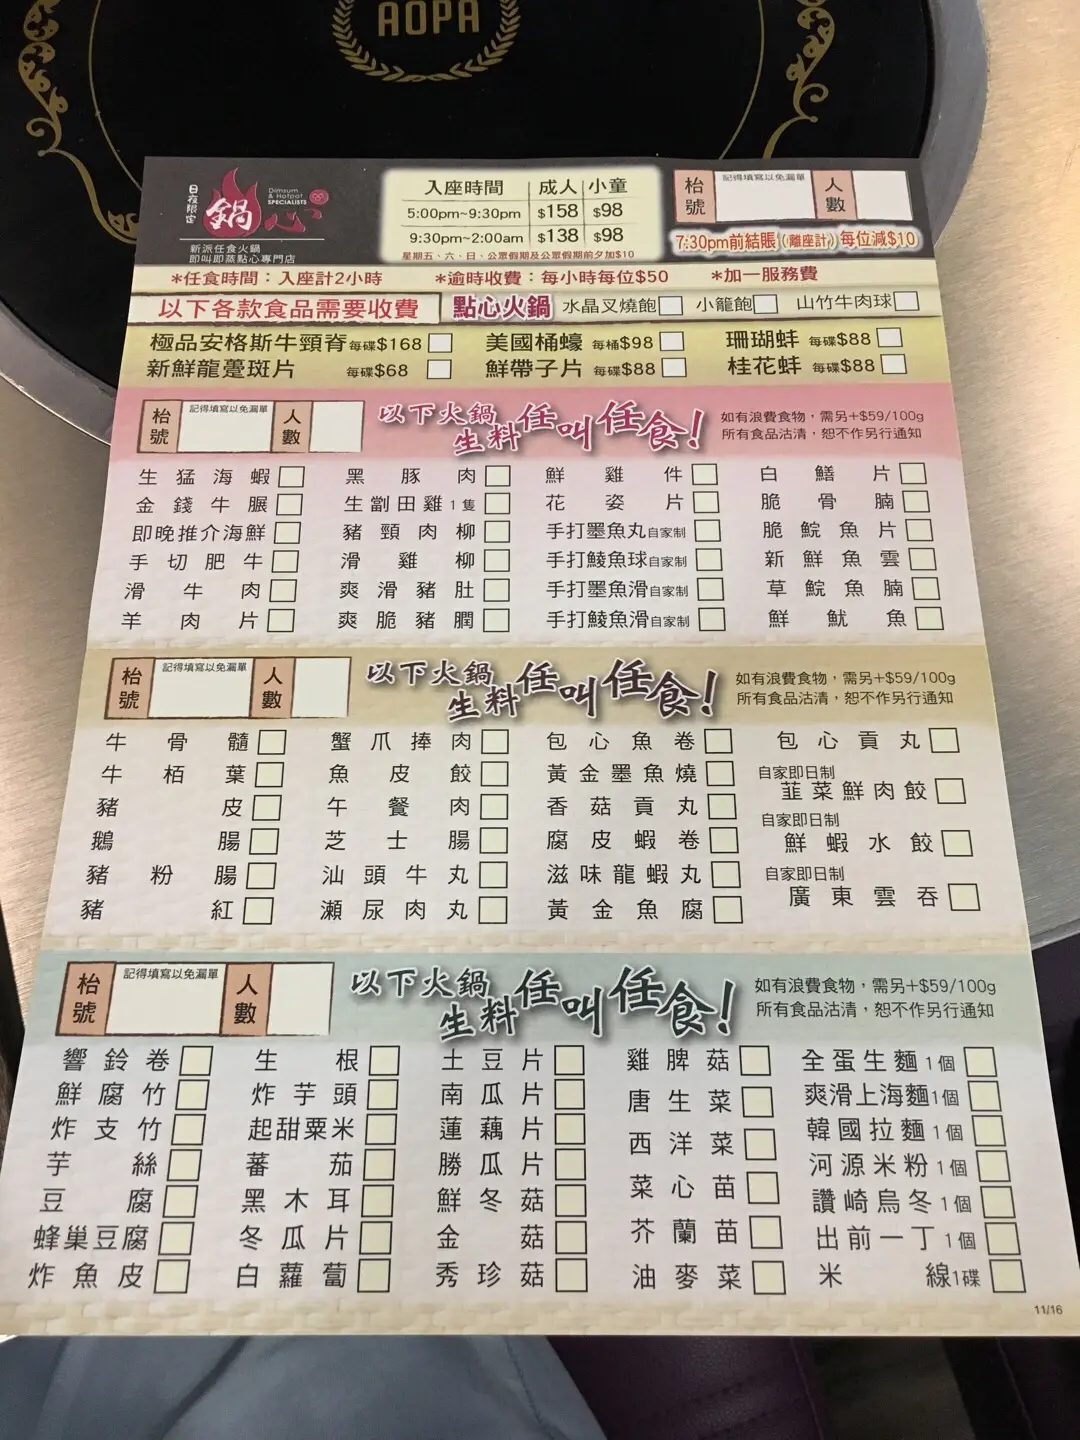 AOPA
日夜限定
鍋心
Dimsum
& Hotpot
SPECIALISTS
新派任食火鍋
即叫即蒸點心專門店
入座時間 成人 小童
5:00pm~9:30pm $158 $98
9:30pm~2:00am $138 $98
星期五、六、日、公眾假期及公眾假期前夕加$10
枱號 記得填寫以免漏單 人數
7:30pm前結賬(離座計)每位減$10
*任食時間：入座計2小時 *逾時收費：每小時每位$50 *加一服務費
以下各款食品需要收費 點心火鍋 水晶叉燒飽 小籠飽 山竹牛肉球
極品安格斯牛頸脊每碟$168 美國桶蠔 每桶$98 珊瑚蚌 每碟$88
新鮮龍躉斑片 每碟$68 鮮帶子片 每碟$88 桂花蚌 每碟$88
枱號 記得填寫以免漏單 人數 以下火鍋生料任叫任食! 如有浪費食物，需另+$59/100g
所有食品沽清，恕不作另行通知
生猛海蝦 黑豚肉 鮮雞件 白鱔片
金錢牛𦟌 生劏田雞1隻 花姿片 脆骨腩
即晚推介海鮮 豬頸肉柳 手打墨魚丸自家制 脆鯇魚片
手切肥牛 滑雞柳 手打鯪魚球自家制 新鮮魚雲
滑牛肉 爽滑豬肚 手打墨魚滑自家制 草鯇魚腩
羊肉片 爽脆豬膶 手打鯪魚滑自家制 鮮魷魚
枱號 記得填寫以免漏單 人數 以下火鍋生料任叫任食! 如有浪費食物，需另+$59/100g
所有食品沽清，恕不作另行通知
牛骨髓 蟹爪捧肉 包心魚卷 包心貢丸
牛栢葉 魚皮餃 黃金墨魚燒 自家即日制 韮菜鮮肉餃
豬皮 午餐肉 香菇貢丸
鵝腸 芝士腸 腐皮蝦卷 自家即日制 鮮蝦水餃
豬粉腸 汕頭牛丸 滋味龍蝦丸 自家即日制 廣東雲吞
豬紅 瀨尿肉丸 黃金魚腐
枱號 記得填寫以免漏單 人數 以下火鍋生料任叫任食! 如有浪費食物，需另+$59/100g
所有食品沽清，恕不作另行通知
響鈴卷 生根 土豆片 雞脾菇 全蛋生麵1個
鮮腐竹 炸芋頭 南瓜片 唐生菜 爽滑上海麵1個
炸支竹 起甜粟米 蓮藕片 西洋菜 韓國拉麵1個
芋絲 蕃茄 勝瓜片 菜心苗 河源米粉1個
豆腐 黑木耳 鮮冬菇 芥蘭苗 讚崎烏冬1個
蜂巢豆腐 冬瓜片 金菇 油麥菜 出前一丁1個
炸魚皮 白蘿蔔 秀珍菇 米線1碟
11/16